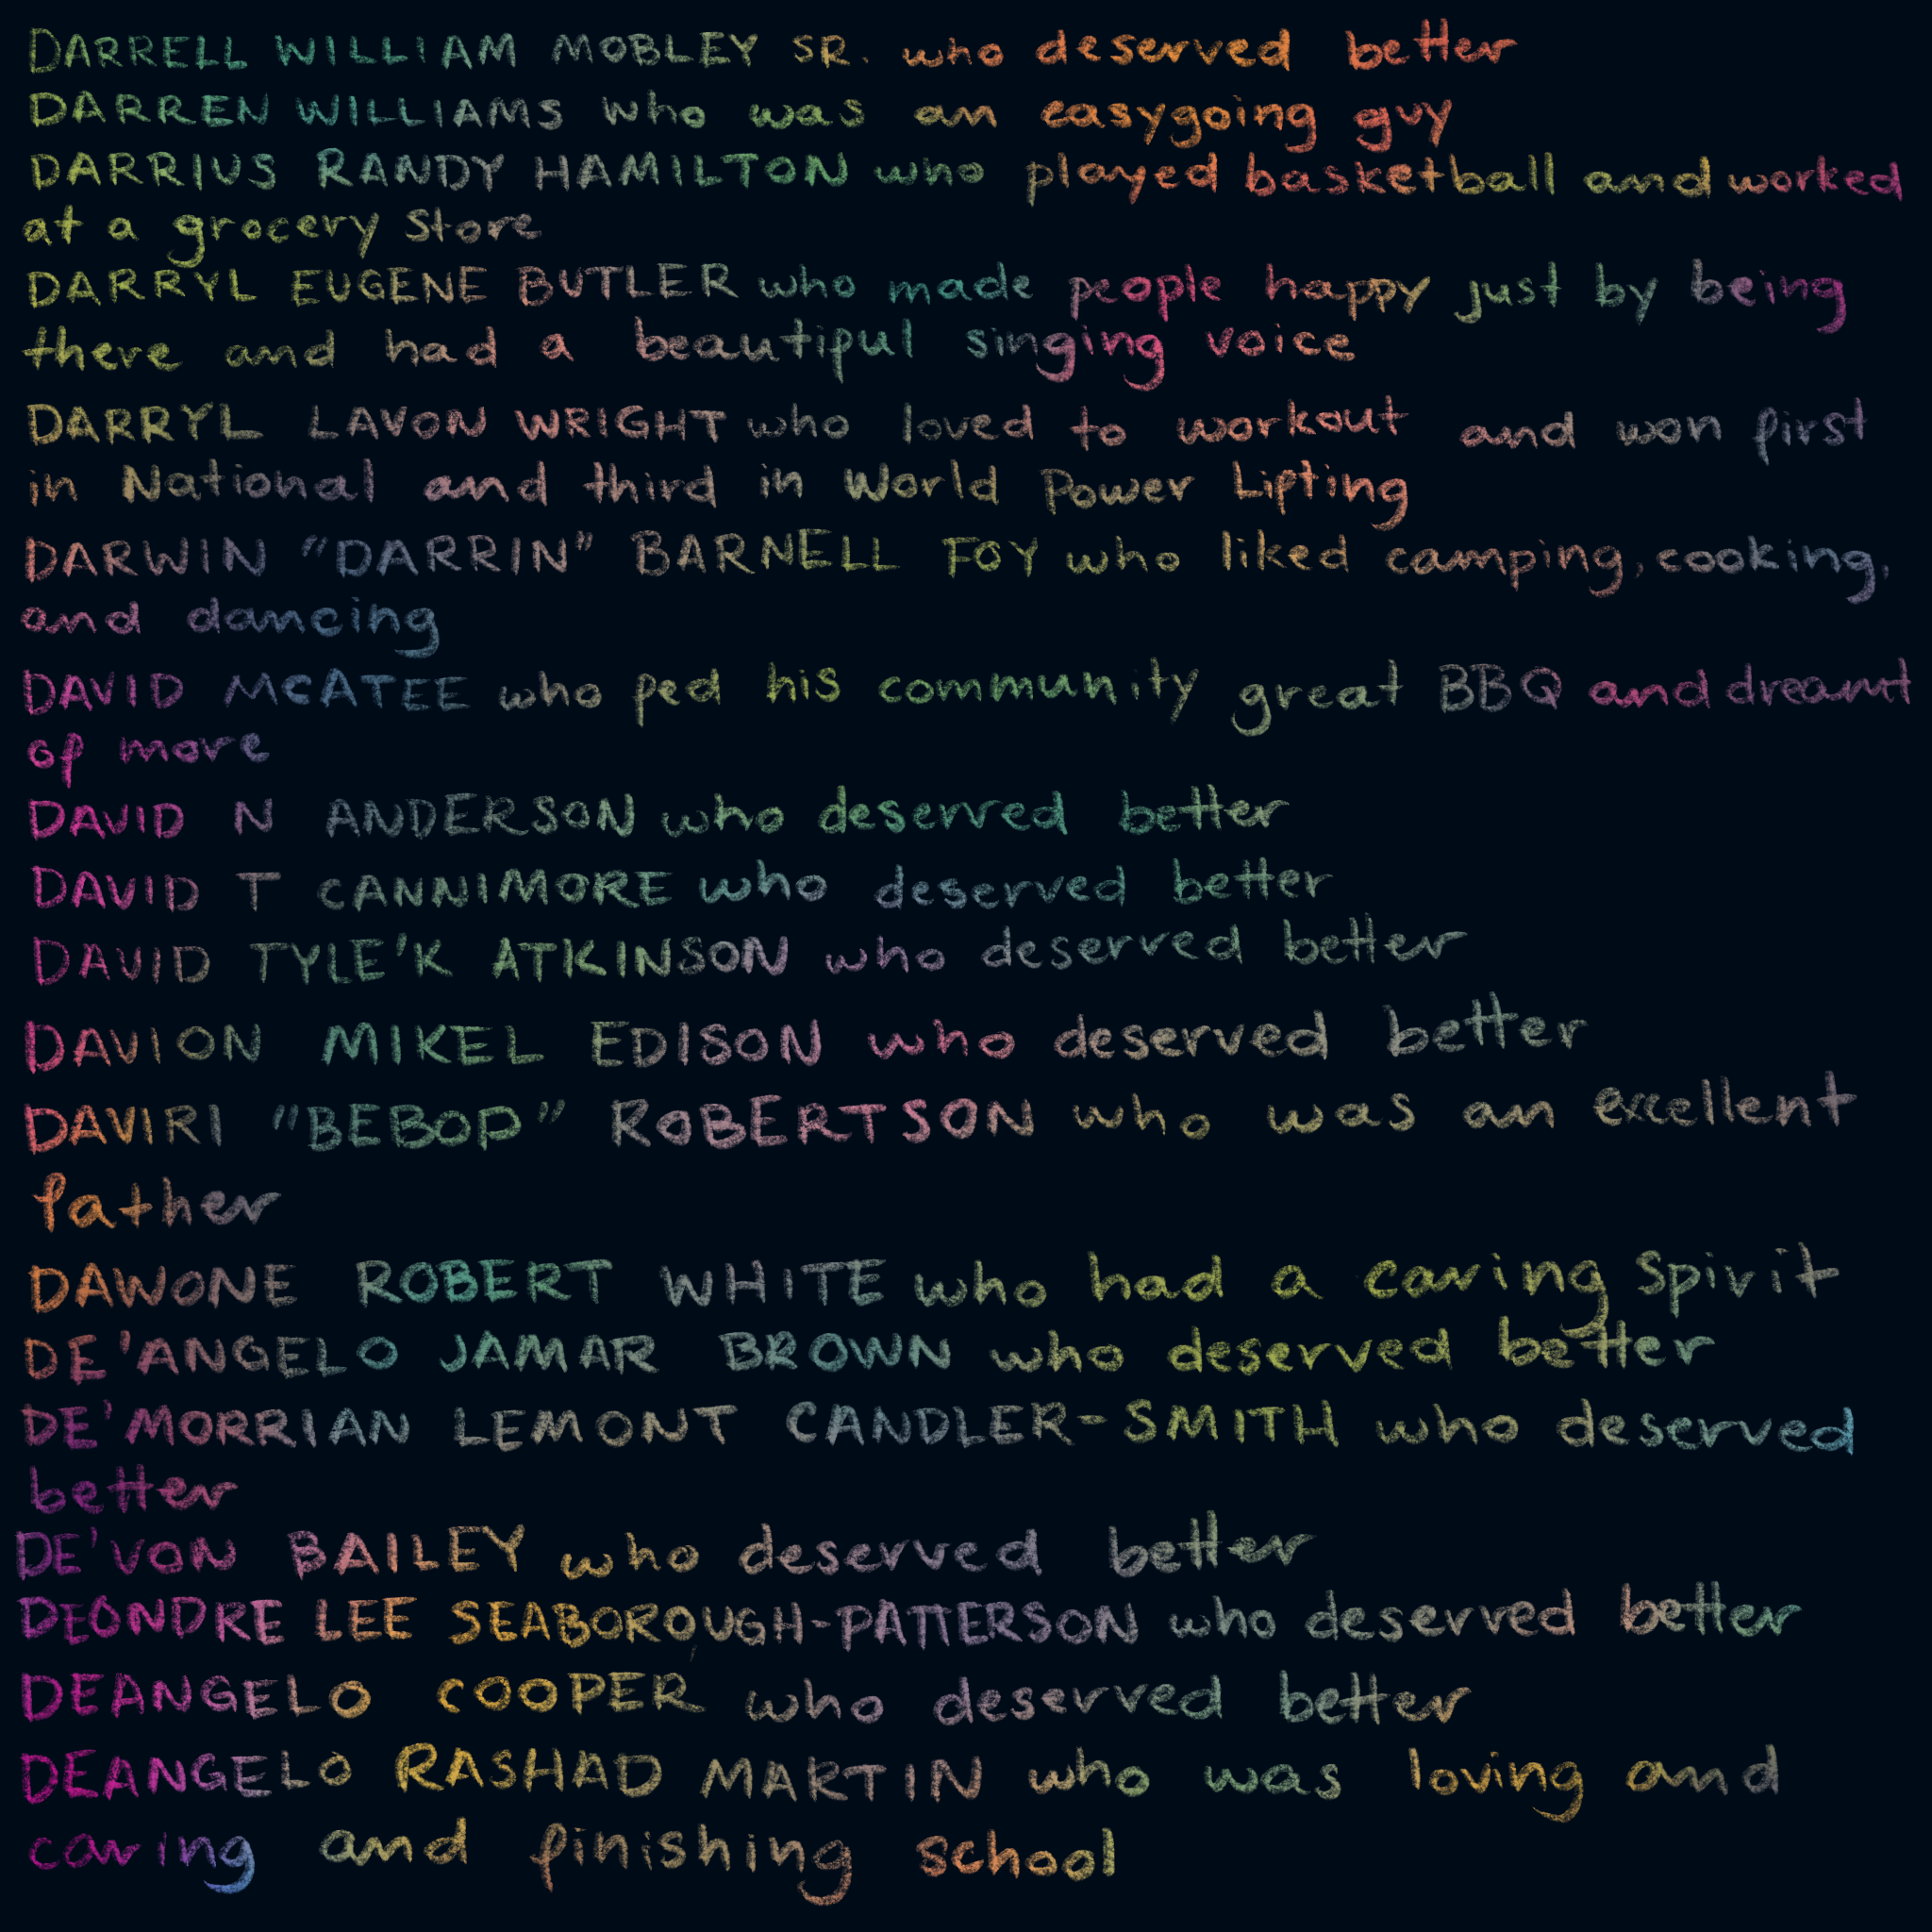 DARRELL WILLIAM MOBLEY SR. who deserved better
DARREN WILLIAMS who was an easygoing guy
DARRIUS RANDY HAMILTON who played basketball and worked
at a grocery store
DARRYL EUGENE BUTLER who made people happy just by being
there and had a beautiful singing voice
DARRYL LAVON WRIGHT who loved to workout and won first
in National and third in World Power Lifting
DARWIN "DARRIN" BARNELL FOY who liked camping, cooking,
and dancing
DAVID MCATEE who fed his community great BBQ and dreamt
of more
DAVID N ANDERSON who deserved better
DAVID T CANNIMORE who deserved better
DAVID TYLE'K ATKINSON who deserved better
DAVION MIKEL EDISON who deserved better
DAVIRI "BEBOP" ROBERTSON who was an excellent
father
DAWONE ROBERT WHITE who had a caring spirit
DE'ANGELO JAMAR BROWN who deserved better
DE'MORRIAN LEMONT CANDLER-SMITH who deserved
better
DE'VON BAILEY who deserved better
DEONDRE LEE SEABOROUGH-PATTERSON who deserved better
DEANGELO COOPER who deserved better
DEANGELO RASHAD MARTIN who was loving and
caring and finishing school